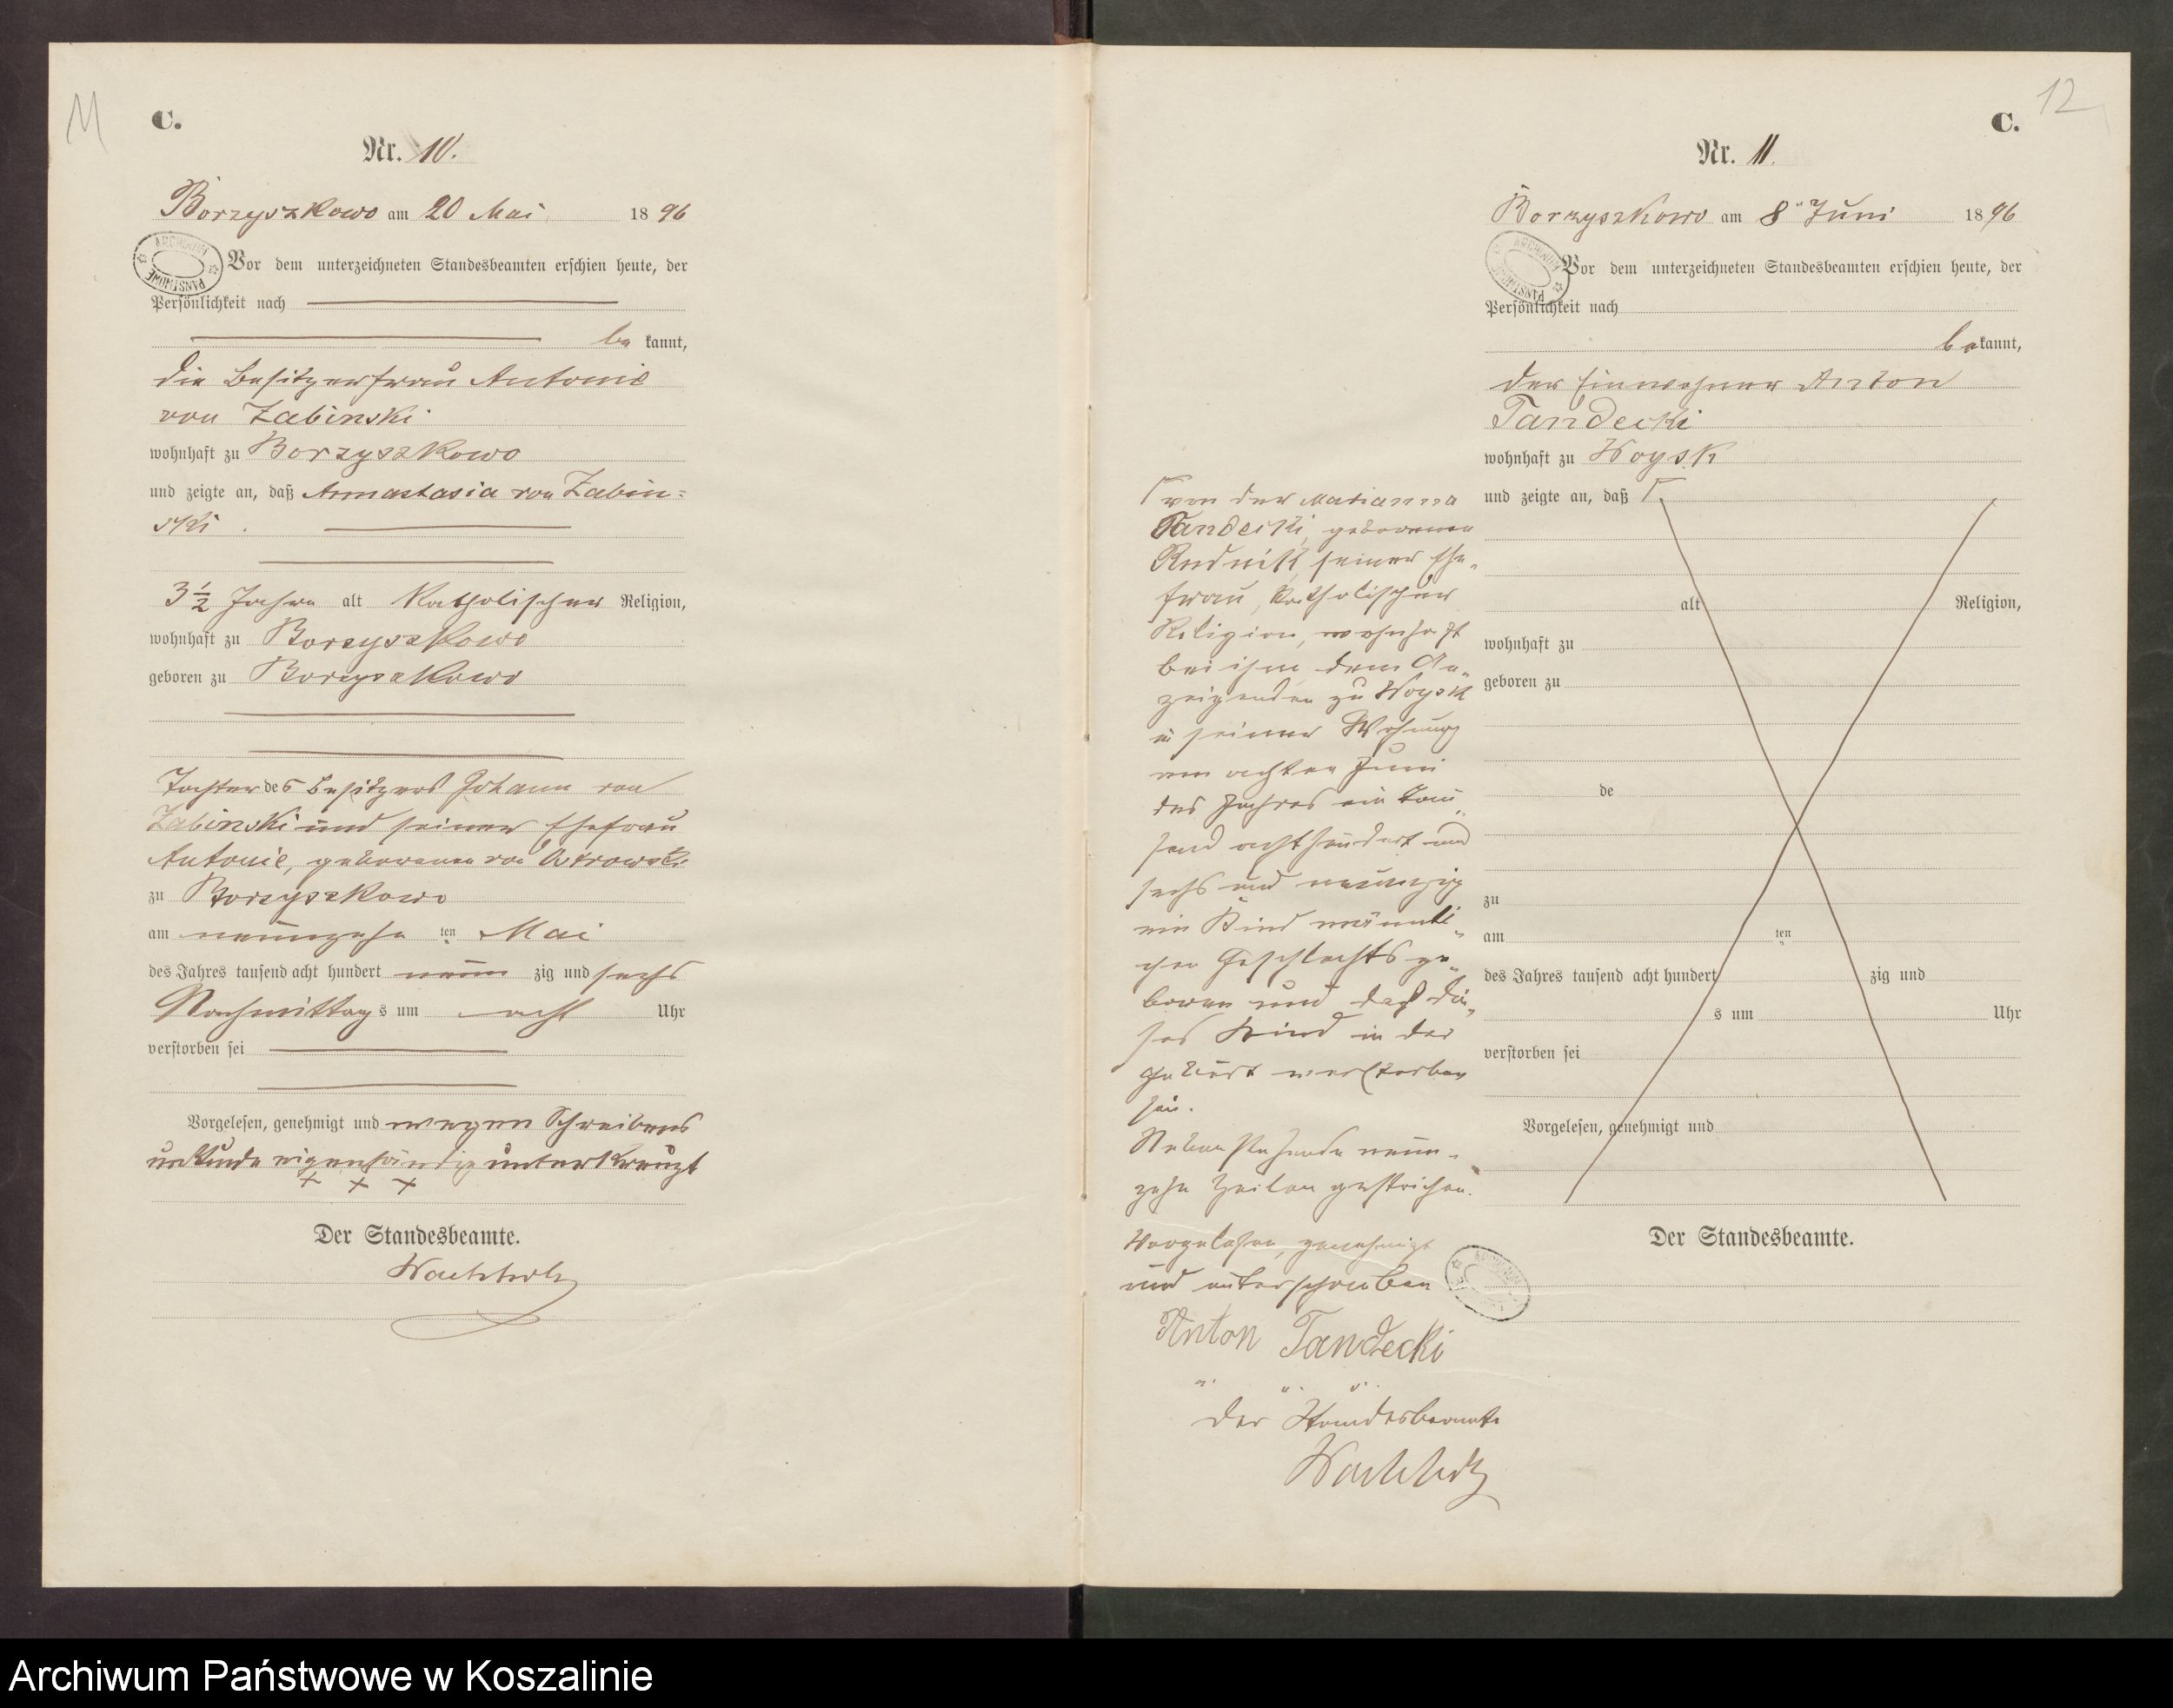 11
C.
Nr. 10.
Borzyszkowo am 20 Mai 1896
Vor dem unterzeichneten Standesbeamten erschien heute, der
Persönlichkeit nach
be kannt,
die Besitzerfrau Antonie
von Zabinski
wohnhaft zu Borzyszkowo
und zeigte an, daß Annastasia von Zabin=
ski.
3 1/2 Jahre alt Katholischer Religion,
wohnhaft zu Borzyszkowo
geboren zu Borzyszkowo
Tochter des Besitzers Johann von
Zabinski und seiner Ehefrau
Antonie, geborenen von Ostrowski
zu Borzyszkowo
am neunzehn ten Mai
des Jahres tausend acht hundert neun zig und sechs
Nachmittags um acht Uhr
verstorben sei
Vorgelesen, genehmigt und wegen Schreibens
unkunde eigenhändig unterkreuzt
+ + +
Der Standesbeamte.
Wachholz
ARCHIWUM PAŃSTWOWE
12
C.
Nr. 11.
Borzyszkowo am 8" Juni 1896
Vor dem unterzeichneten Standesbeamten erschien heute, der
Persönlichkeit nach
be kannt,
der Einwohner Anton
Tandecki
wohnhaft zu Woysk
und zeigte an, daß Γ
alt Religion,
wohnhaft zu
geboren zu
de
zu
am ten
des Jahres tausend acht hundert zig und
s um Uhr
verstorben sei
Vorgelesen, genehmigt und
Der Standesbeamte.
Γ von der Marianna
Tandecki, geborenen
Rudnik seiner Ehe„
frau, Katholischer
Religion, wohnhaft
bei ihm dem An„
zeigenden zu Woysk
in seiner Wohnung
am achten Juni
des Jahres ein tau„
send achthundert und
sechs und neunzig
ein Kind männli„
chen Geschlechts ge„
boren und daß die„
ses Kind in der
Geburt verstorben
sei.
Nebenstehende neun„
zehn Zeilen gestrichen.
Vorgelesen, genehmigt
und unterschrieben
Anton Tandecki
Der Standesbeamte
Wachholz
ARCHIWUM PAŃSTWOWE
Archiwum Państwowe w Koszalinie